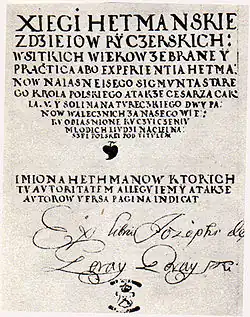 XIEGI HETMANSKIE
Z DZIEIOW RYCZERSKICH:
WSITKICH WIEKOW ZEBRANE Y
PRACTICA ABO EXPERIENTIA HETMA:
NOW NAIASNEISEGO SIGMUNTA STARE
GO KROLA POLSKIEGO A TAKZE CESARZA CAR
LA. V. Y SOLIMANA TVRECZSKIEGO DWY PA:
NOW WALECZNICH ZA NASEGO WIE:
KV OBIASNIONE KV CZVICZENIV
MLODICH LIVDSI NA CIELNA:
SZEI POLSKEI POD TITVLEM
IMIONA HETHMANOW KTORICH
TV AVTORITATEM ALLEGVIEMY A TAKZE
AVTOROW VERSA PAGINA INDICAT
Ex libris Josephi de